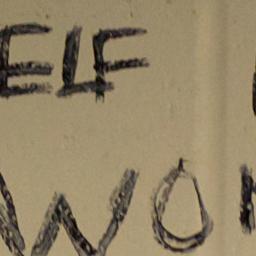 ELF
WO